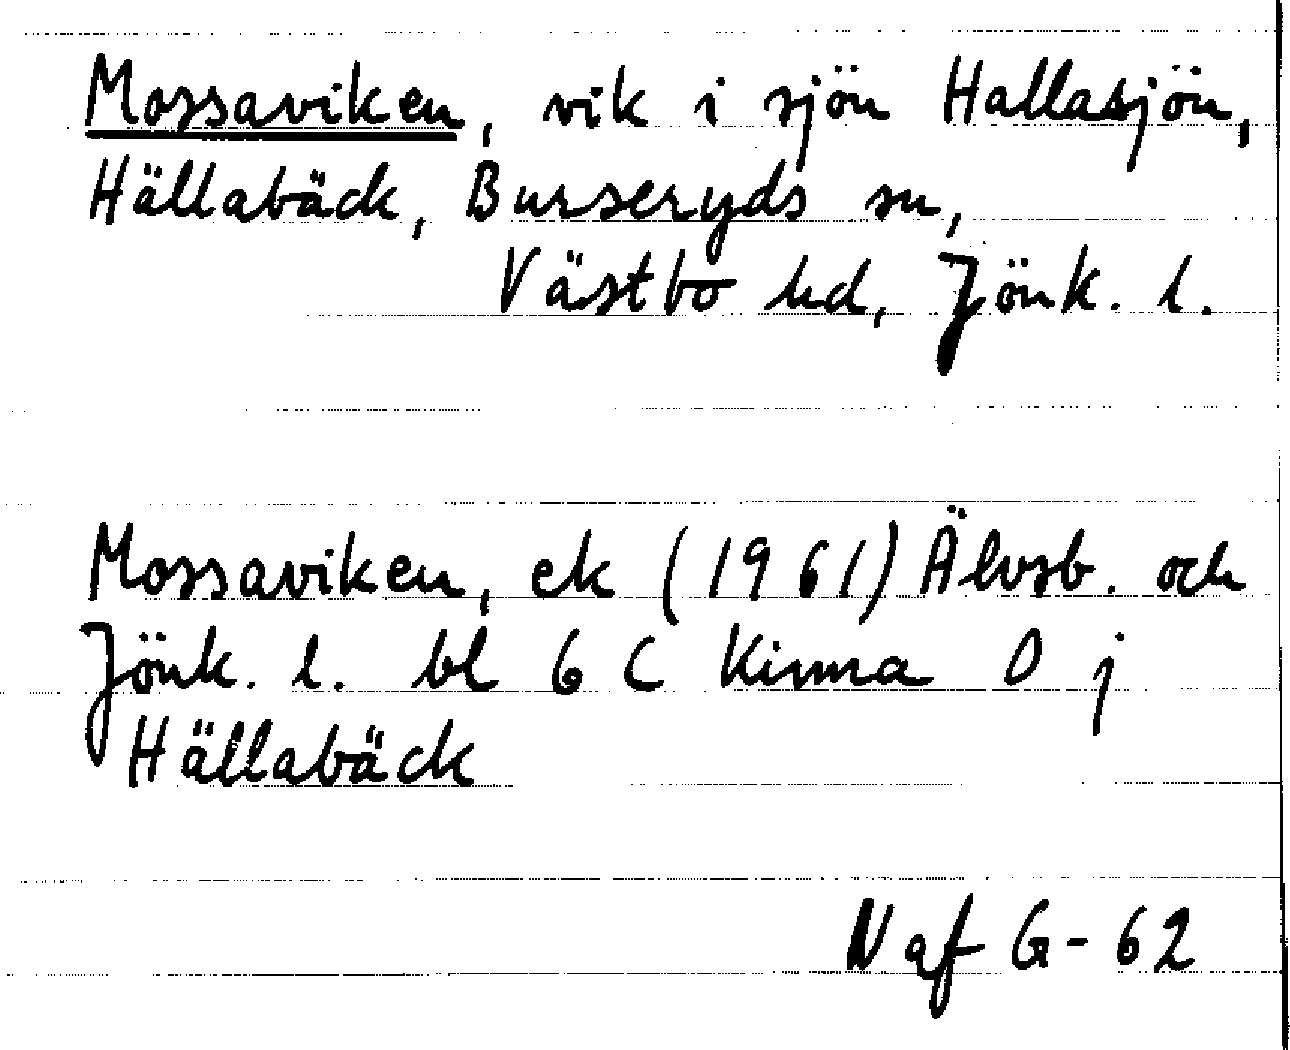 Mossaviken, vik i sjön Hallasjön,
Hällabäck, Burseryds sn,
Västbo hd, Jönk. l.
Mossaviken, ek (1961) Älvsb. och
Jönk. l. bl 6 C Kinna 0 j
Hällabäck
N af G-62